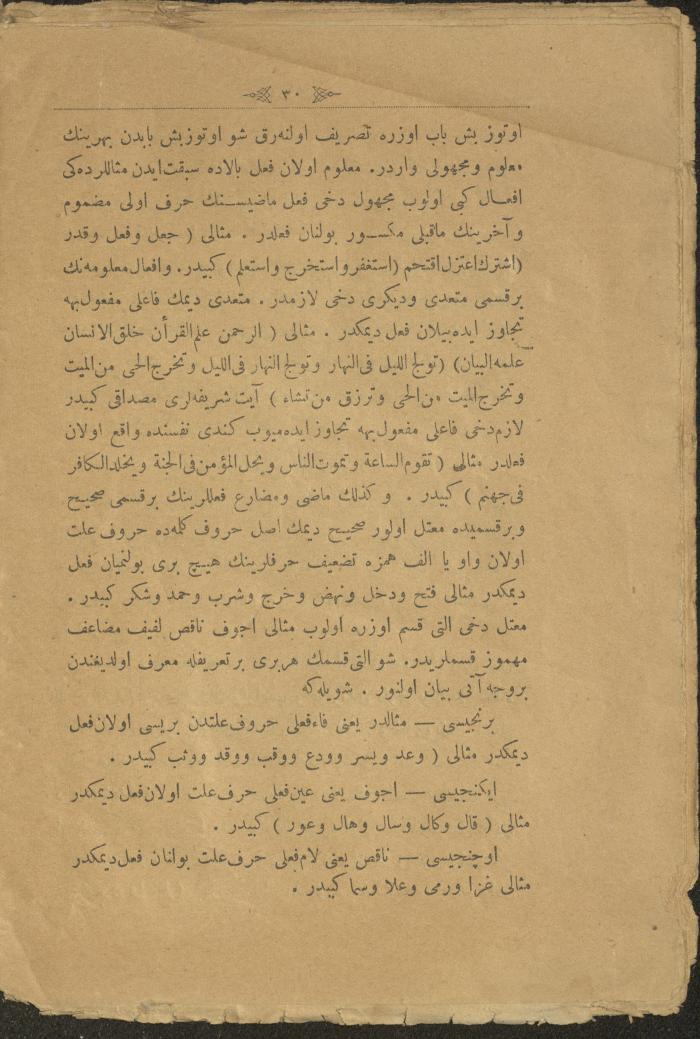 ٣٠
اوتوز بش باب اوزره تصريف اولنه‌رق شو اوتوزبش بابدن بهرينك
معلوم ومجهولى واردر. معلوم اولان فعل بالاده سبقت‌ايدن مثاللرده‌كى
افعال كبى اولوب مجهول دخى فعل ماضيسنك حرف اولى مضموم
وآخرينك ماقبلى مكسور بولنان فعلدر . مثالى ( جعل وفعل وقدر
(اشترك‌اعتزل‌اقتحم (استغفر واستخرج واستعلم) كبيدر. وافعال معلومه‌نك
برقسمى متعدى وديكرى دخى لازمدر . متعدى ديمك فاعلى مفعول‌بهه
تجاوز ايده‌بيلان فعل ديمكدر . مثالى ( الرحمن علم‌القرأن خلق‌الانسان
علمه‌البيان) (تولج الليل فى‌النهار وتولج النهار فى‌الليل وتخرج‌الحى من‌الميت
وتخرج‌الميت من‌الحى وترزق من‌تشاء ) آيت شريفه‌لرى مصداقى كبيدر
لازم‌دخى فاعلى مفعول‌بهه تجاوز ايده‌ميوب كندى نفسنده واقع اولان
فعلدر مثالى ( تقوم‌الساعة وتموت‌الناس ويحل‌المؤمن‌فى‌الجنة ويخلدالكافر
فى‌جهنم ) كبيدر . وكذلك ماضى ومضارع فعللرينك برقسمى صحيح
وبرقسميده معتل اولور صحيح ديمك اصل حروف كلمه‌ده حروف علت
اولان واو يا الف همزه تضعيف حرفلرينك هيچ برى بولنميان فعل
ديمكدر مثالى فتح ودخل ونهض وخرج وشرب وحمد وشكر كبيدر .
معتل دخى التى قسم اوزره اولوب مثالى اجوف ناقص لفيف مضاعف
مهموز قسملريدر. شو التى‌قسمك هربرى برتعريفله معرف اولديغندن
بروجه آتى بيان اولنور . شويله‌كه
برنجيسى — مثالدر يعنى فاءفعلى حروف‌علتدن بريسى اولان‌فعل
ديمكدر مثالى ( وعد ويسر وودع ووقب ووقد ووثب كبيدر .
ايكنجيسى — اجوف يعنى عين‌فعلى حرف‌علت اولان‌فعل ديمكدر
مثالى ( قال وكال وسال وهال وعور ) كبيدر .
اوچنجيسى — ناقص يعنى لام‌فعلى حرف‌علت بولنان فعل‌ديمكدر
مثالى غزا ورمى وعلا وسما كبيدر .